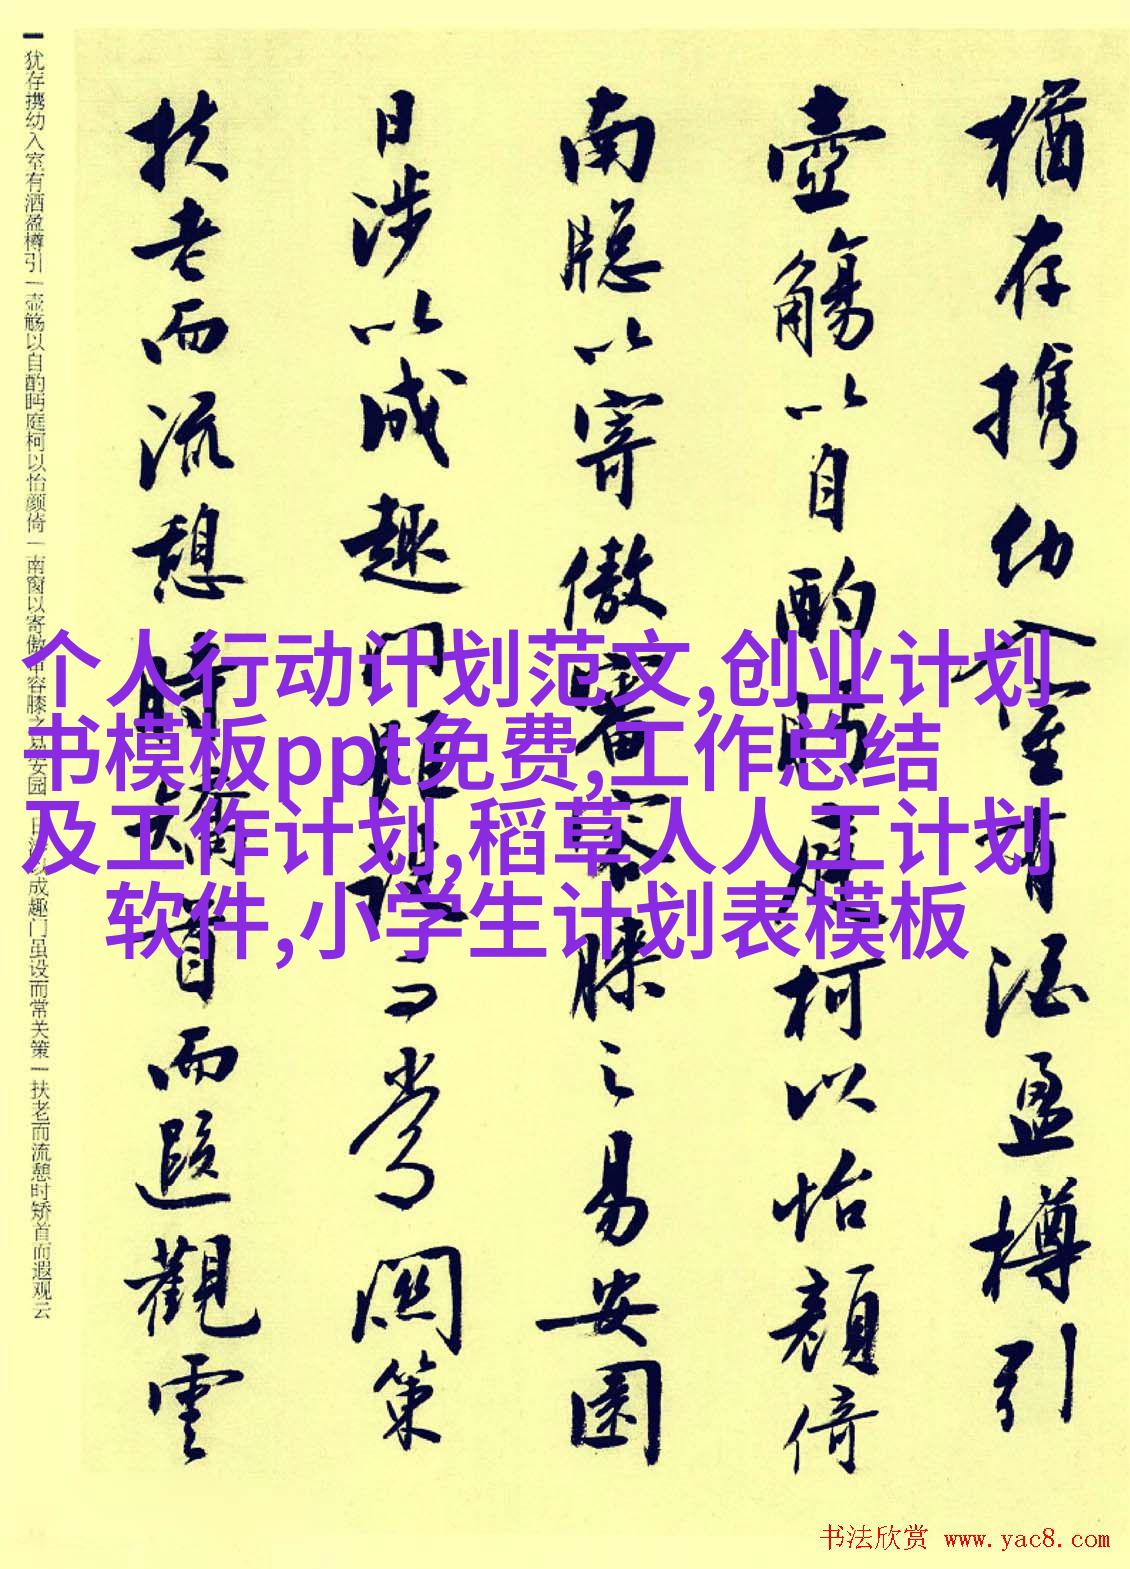 猶存携幼入室有酒盈樽引
壺觴以自酌眄庭柯以怡顏倚
南牕以寄傲審容膝之易安園
日涉以成趣門雖設而常關策
扶老而流憩時矯首而遐觀雲
犹存携幼入室有洒盈樽引|壶觞以自酌眄庭柯以怡颜倚|南窗以寄傲审容膝之易安园|日涉以成趣门虽设而常关策|扶老而流憩时矫首而遐观云
个人行动计划范文,创业计划
书模板ppt免费,工作总结
及工作计划,稻草人人工计划
软件,小学生计划表模板
书法欣赏 www.yac8.com